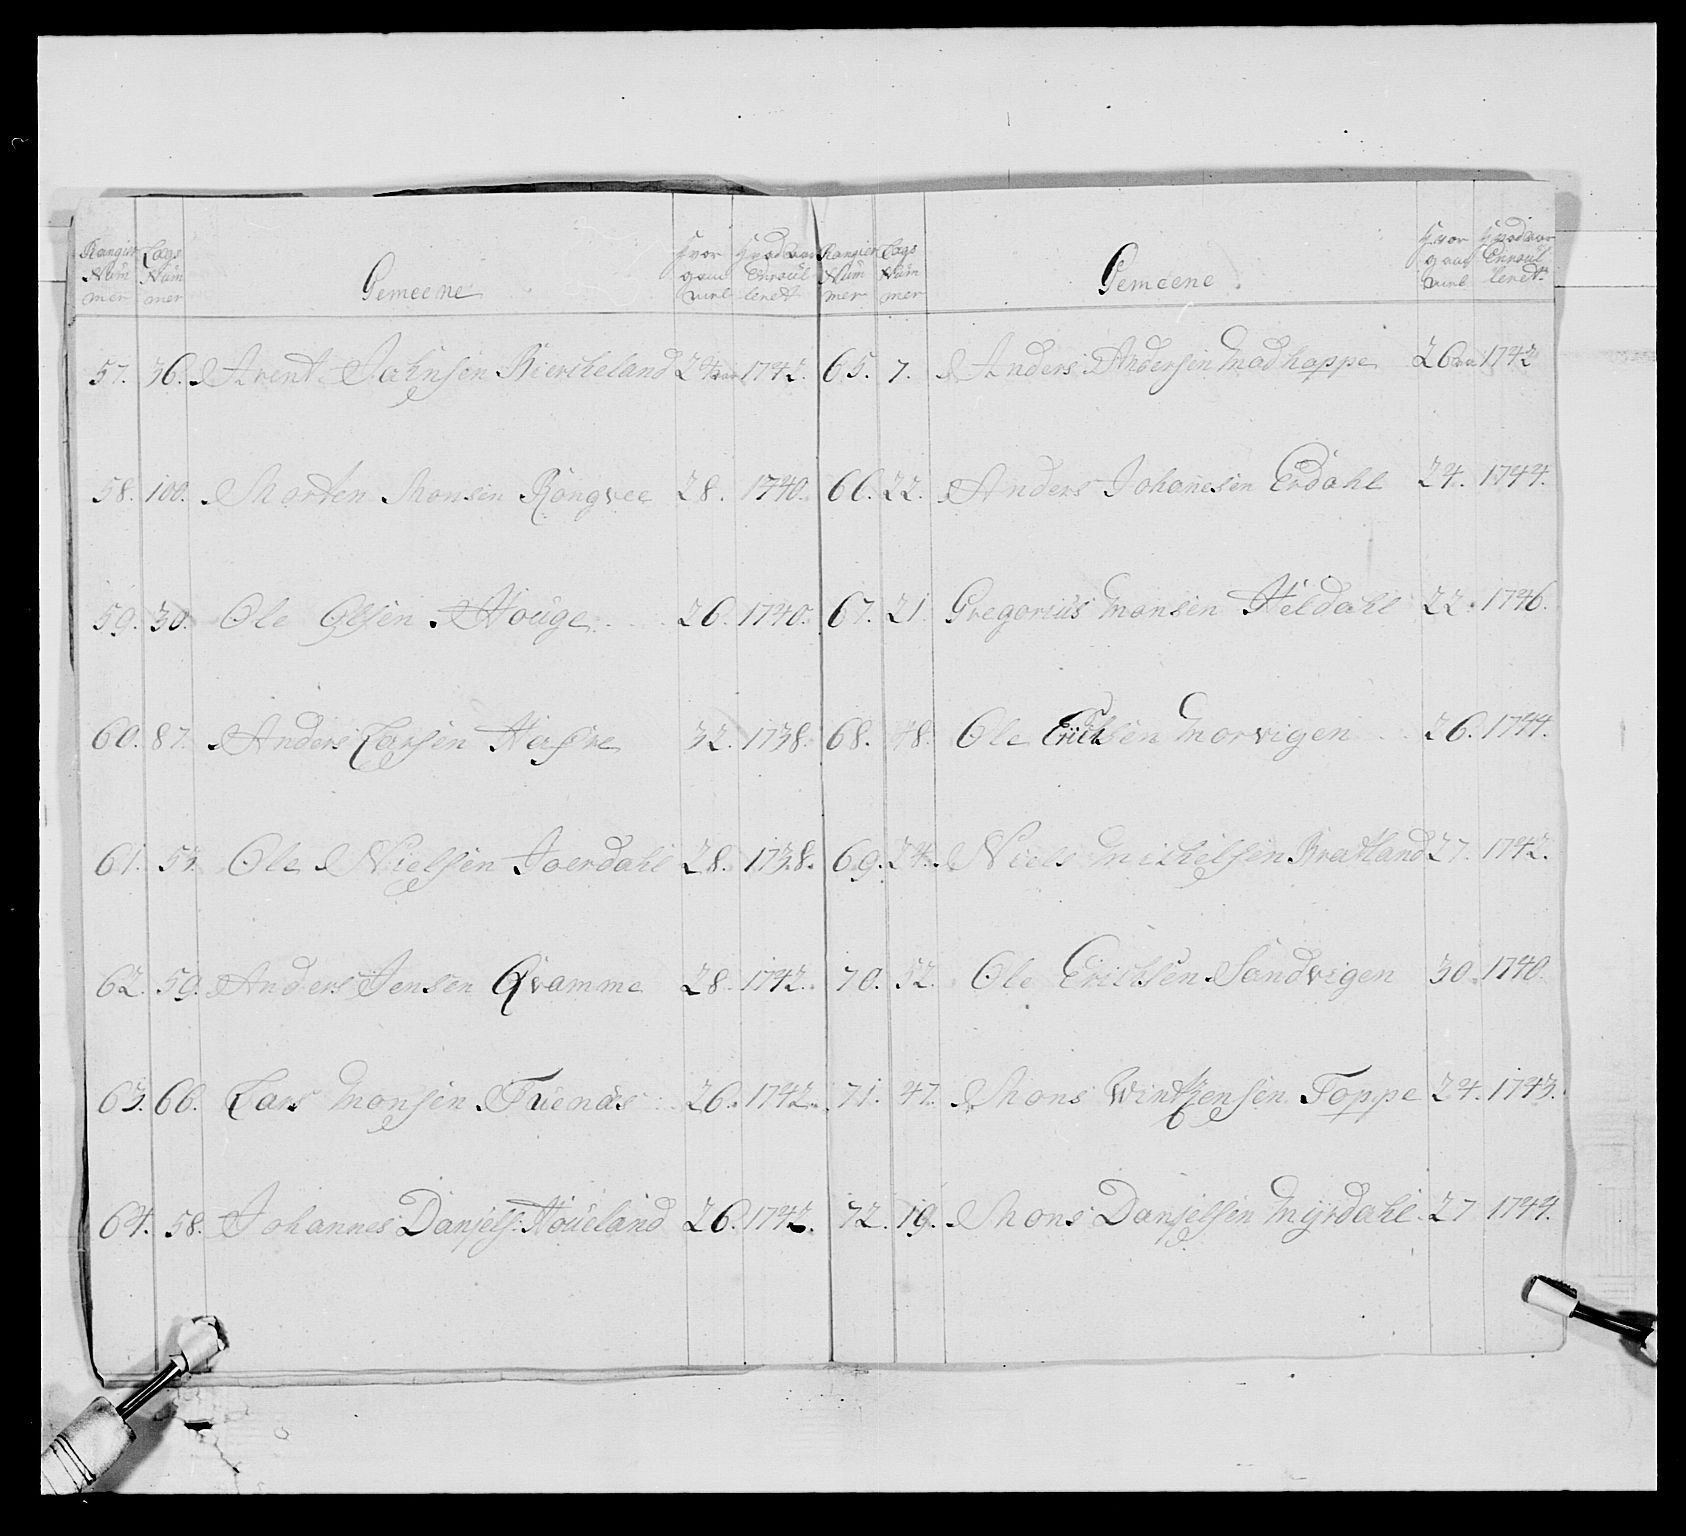 Rangier Num mer
Lægs Num mer
Gemeene
Hvor gam mel
Hvad aar Enroul leret
57. 36. Arent Johnsen Biercheland 24 aar 1742.
58. 100. Morten Monsen Rongvee 28. 1740.
59. 30. Ole Olsen Houge 26. 1740.
60. 87. Anders Larsen 32. 1738.
61. 53. Ole Nielsen Joerdahl 28. 1738.
62. 59. Anders Jensen Qvamme 28. 1742.
63. 66. Lars Monsen 26. 1742.
64. 58. Johannes Danjels: Houeland 26. 1742.
Rangier Num mer
Lægs Num mer
Gemeene
Hvor gam mel
Hvad aar Enroul leret
65. 7. Anders Andersen Madhappe 26 aar 1742
66. 22. Anders Johanesen Erdahl 24. 1744.
67. 21. Gregorius Monsen Heldahl 22. 1746.
68. 48. Ole Ericksen Morvigen 26. 1744.
69. 24. Niels Michelsen Bratland 27. 1742.
70. 52. Ole Erichsen Sandvigen 30. 1740.
71. 47. Mons Toppe 24. 1743.
72. 19. Mons Danjelsen Myrdahl 27 1744.